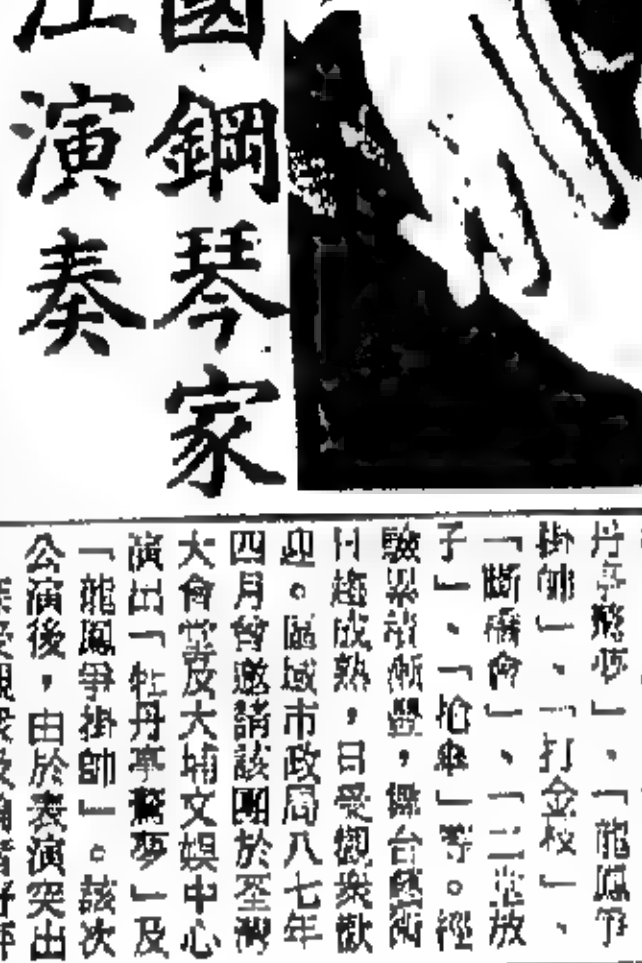 國鋼琴家
江演奏
丹亭驚夢」、「龍鳳爭
掛帥」、「打金枝」、
「斷橋會」、「二堂放
子」、「搶傘」等。經
驗累積漸豐，舞台藝術
日趨成熟，日受觀衆歡
迎。區域市政局八七年
四月曾邀請該團於荃灣
大會堂及大埔文娛中心
演出「牡丹亭驚夢」及
「龍鳳爭掛帥」。該次
公演後，由於表演突出